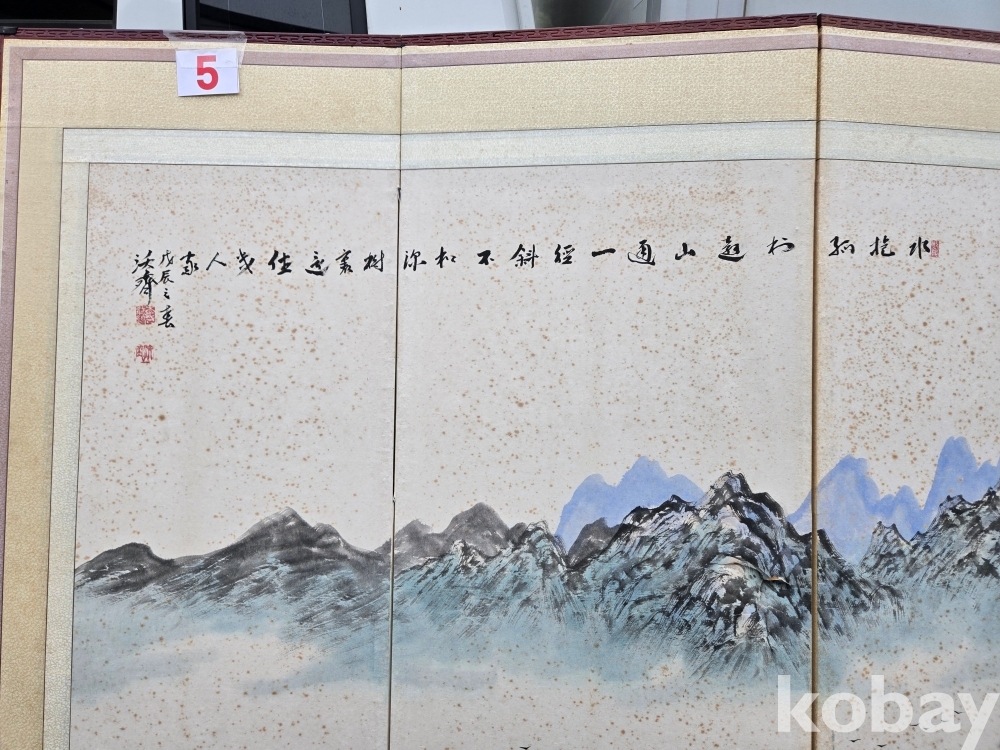 5
水抱孤村遠山通一徑斜不知深樹裏還住幾人家
戊辰之春
kobay